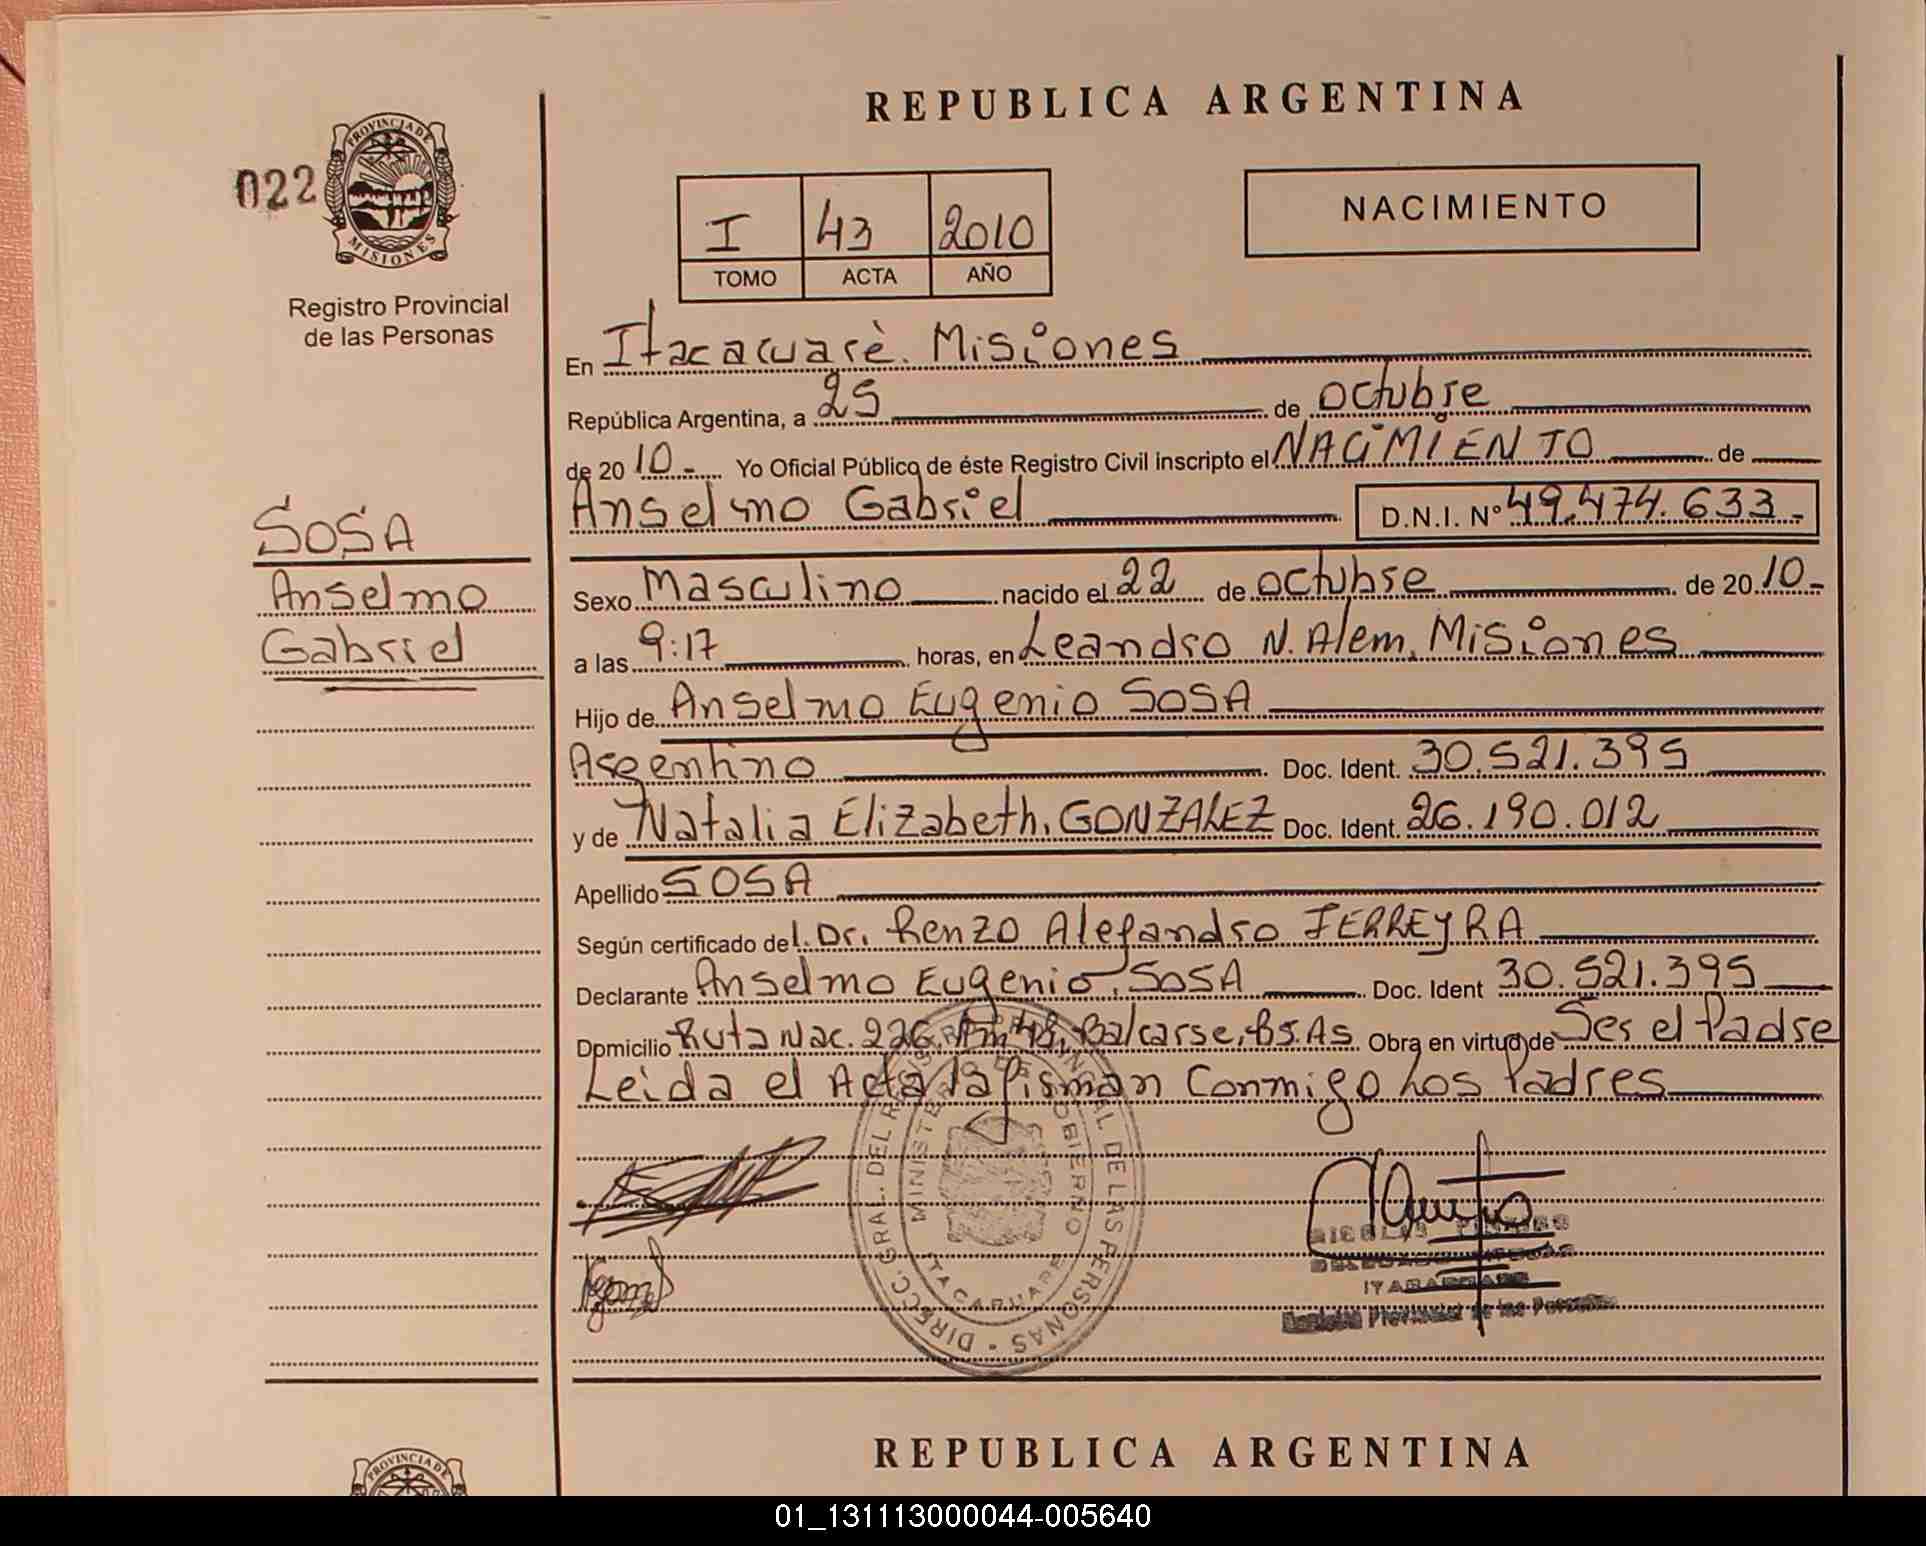 REPUBLICA ARGENTINA
022
PROVINCIA DE
MISIONES
Registro Provincial
de las Personas
I 43 2010
TOMO ACTA AÑO
NACIMIENTO
SOSA
Anselmo
Gabriel
En Itacaruarè. Misiones
República Argentina, a 25 de octubre
de 20 10.- Yo Oficial Público de éste Registro Civil inscripto el NACiMiENTO de
Anselmo Gabriel D.N.I. Nº 49.474.633.-
Sexo Masculino nacido el 22 de octubre de 20 10.-
a las 9:17 horas, en Leandro N. Alem, Misiones
Hijo de Anselmo Eugenio SOSA
Argentino Doc. Ident. 30.521.395
y de Natalia Elizabeth, GONZALEZ Doc. Ident. 26.190.012
Apellido SOSA
Según certificado del. Dr. Renzo Alejandro FERREYRA
Declarante Anselmo Eugenio, SOSA Doc. Ident 30.521.395
Domicilio Ruta Nac. 226, Km 48, Balcarse, BS.AS. Obra en virtud de Ser el Padre
Leida el Acta la firman Conmigo Los Padres
DIRECC. GRAL. DEL REGISTRO PROVINCIAL DE LAS PERSONAS
MINISTERIO DE GOBIERNO
ITACARUARE
Provincial de las Personas
REPUBLICA ARGENTINA
PROVINCIA DE
01_131113000044-005640